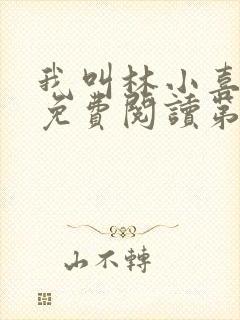 我叫林小喜
免費閱讀第
山不轉